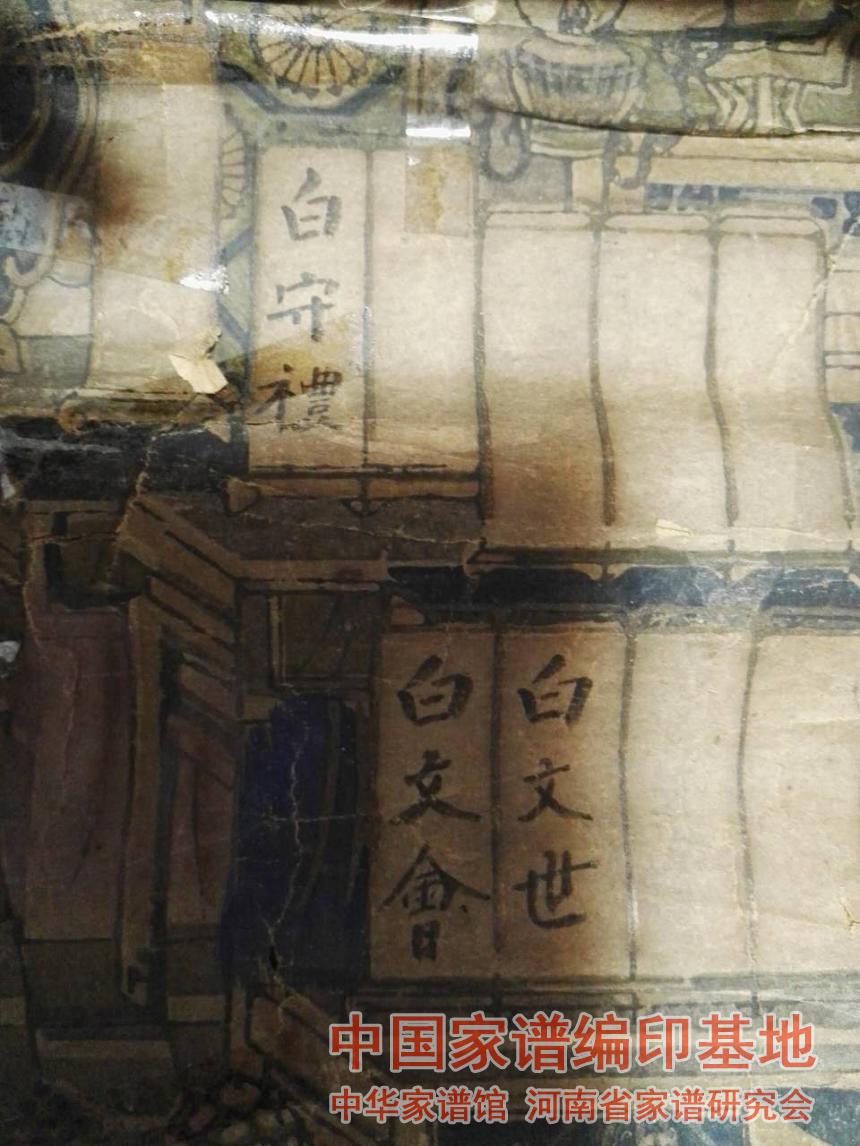 白守禮
白文世
白文會
中国家谱编印基地
中华家谱馆 河南省家谱研究会